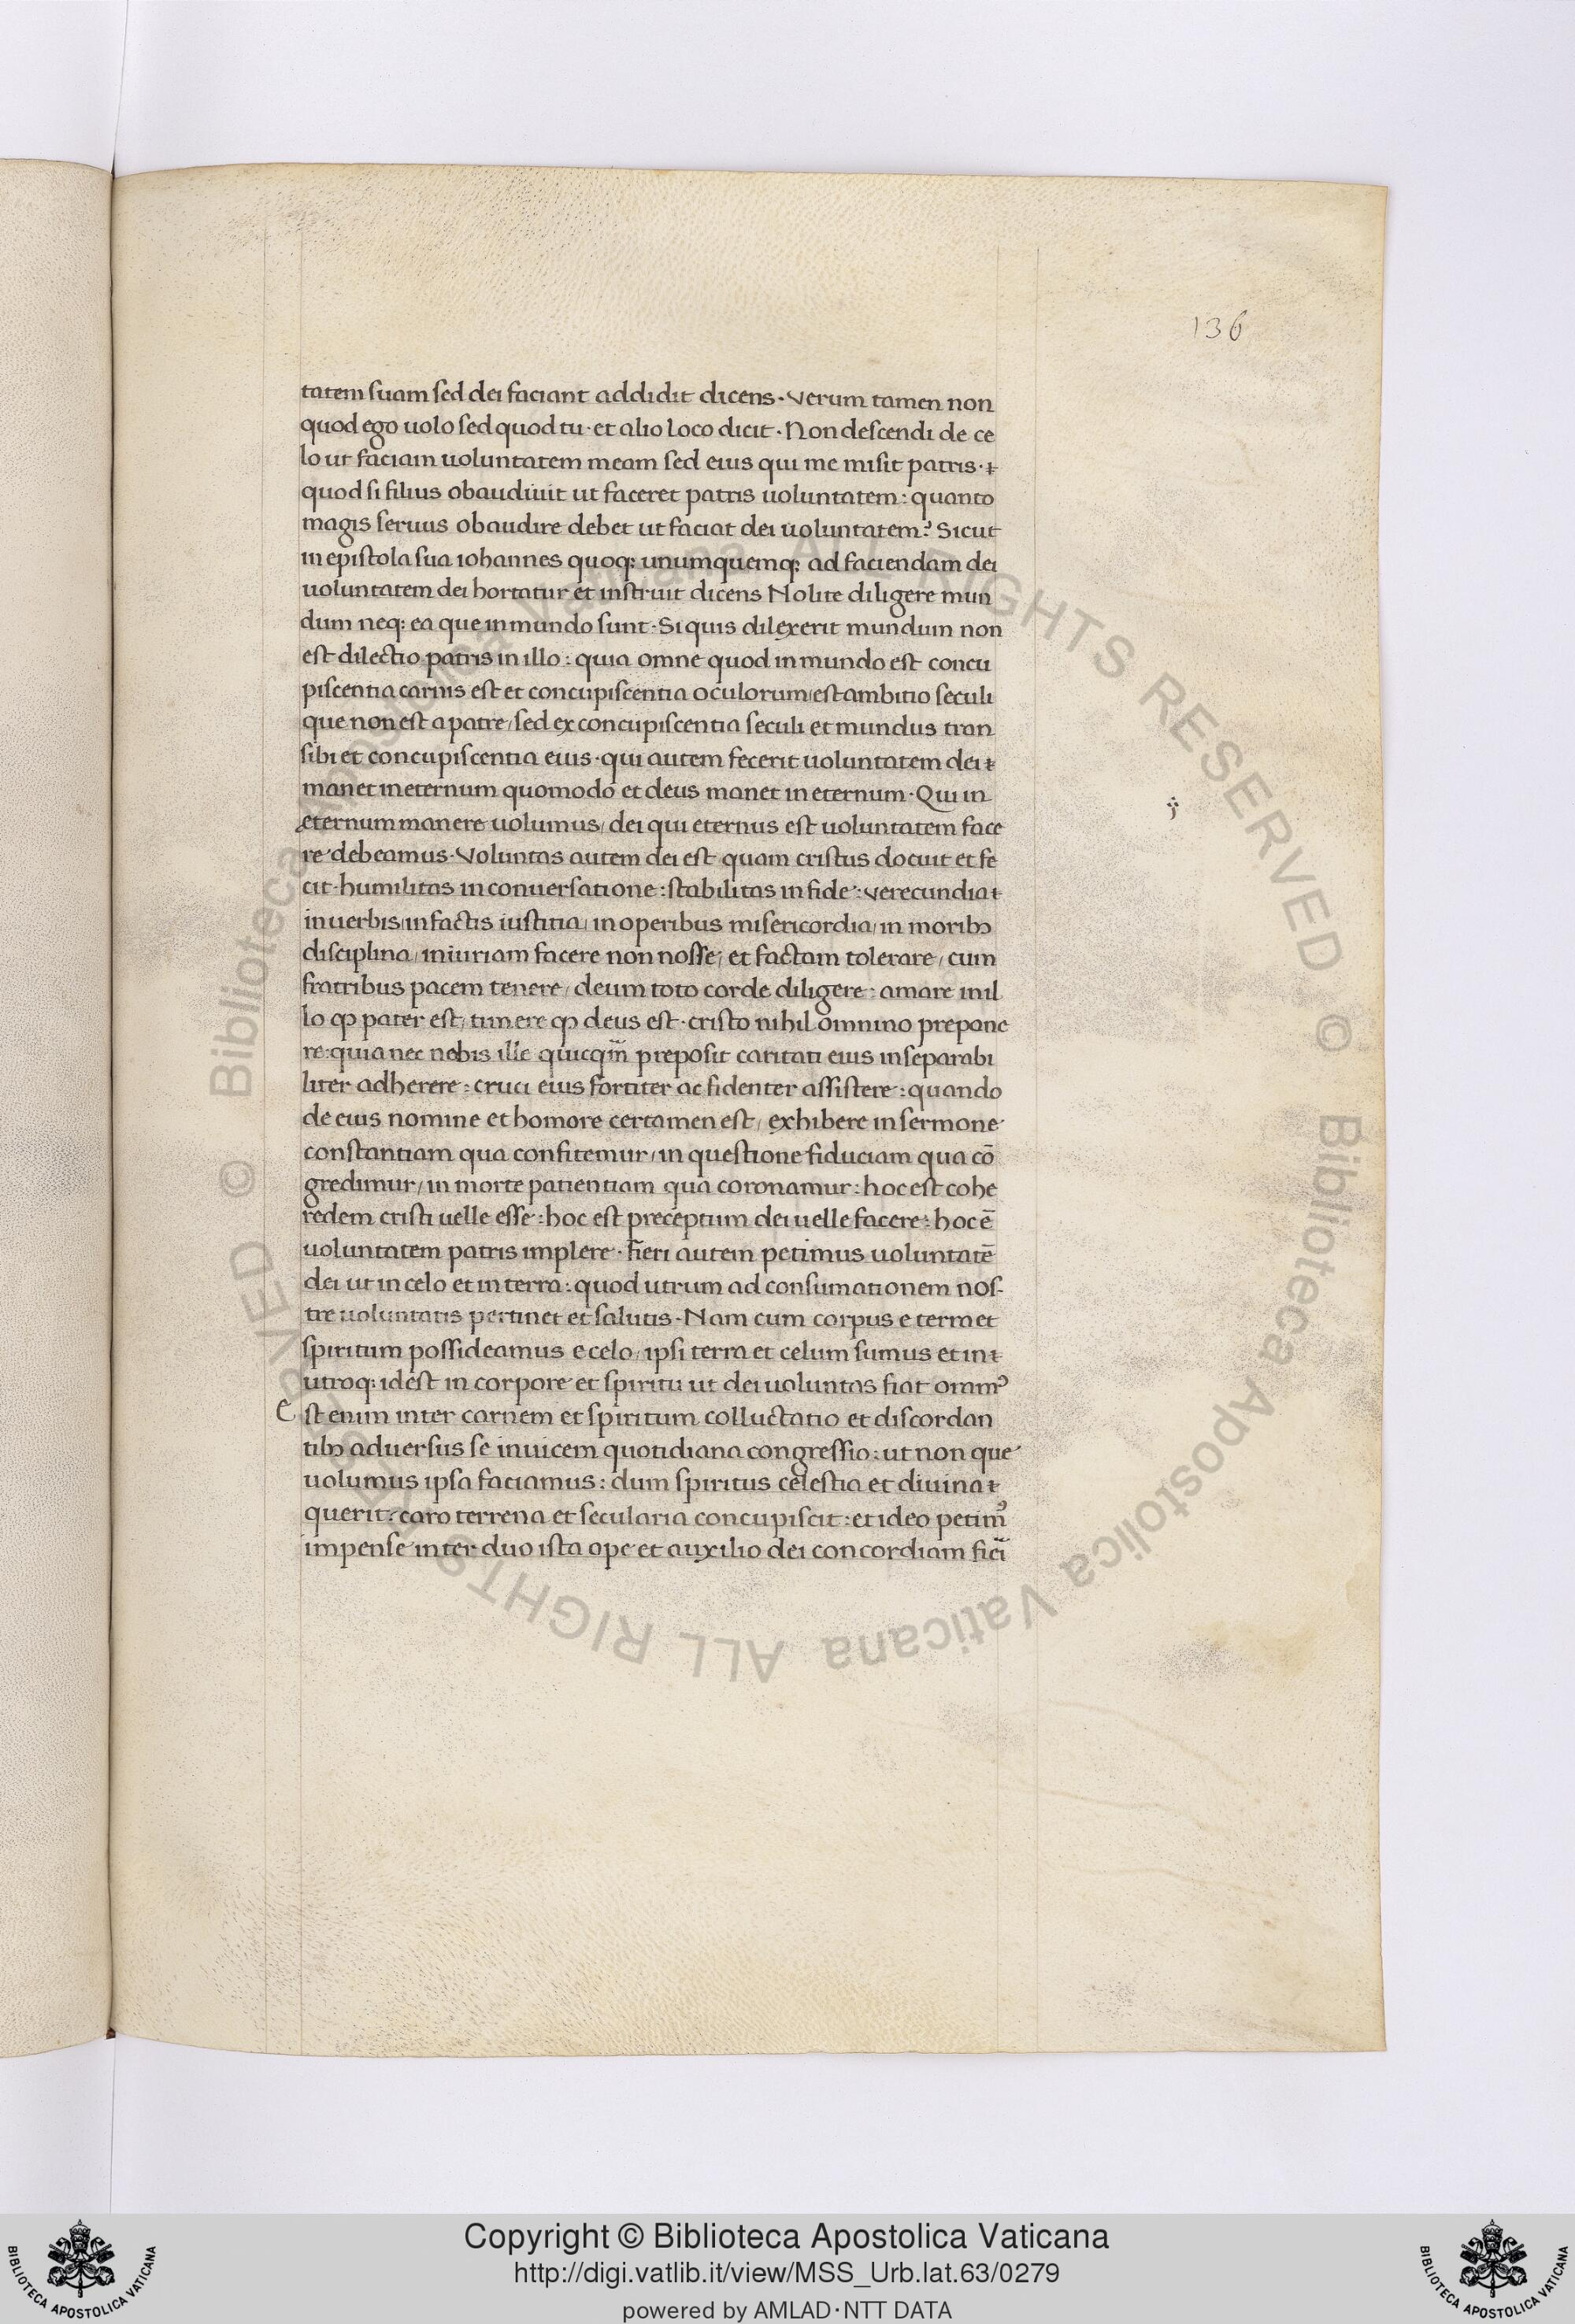 136
tatem suam sed dei faciant addidit dicens · verum tamen non
quod ego uolo sed quod tu · et alio loco dicit · Non descendi de ce
lo ut faciam uoluntatem meam sed eius qui me misit patris ·
quod si filius obaudiuit ut faceret patris uoluntatem : quanto
magis seruus obaudire debet ut faciat dei uoluntatem? Sicut
in epistola sua iohannes quoq: unumquemq: ad faciendam dei
uoluntatem dei hortatur et instruit dicens Nolite diligere mun
dum neq: ea que in mundo sunt · Si quis dilexerit mundum non
est dilectio patris in illo : quia omne quod in mundo est concu
piscentia carnis est et concupiscentia oculorum / est ambitio seculi
que non est a patre / sed ex concupiscentia seculi et mundus tran
sibi et concupiscentia eius · qui autem fecerit uoluntatem dei
manet in eternum quomodo et deus manet in eternum · Qui in
eternum manere uolumus / dei qui eternus est uoluntatem face
re debeamus · Voluntas autem dei est quam cristus docuit et fe
cit · humilitas in conuersatione : stabilitas in fide : verecundia
in uerbis / in factis iustitia / in operibus misericordia / in morib₉
disciplina / iniuriam facere non nosse / et factam tolerare / cum
fratribus pacem tenere / deum toto corde diligere : amare in il
lo qp pater est / timere qp deus est · cristo nihil omnino prepone
re : quia nec nobis ille quicq̄m preposit caritati eius inseparabi
liter adherere : cruci eius fortiter ac fidenter assistere : quando
de eius nomine et homore certamen est / exhibere in sermone
constantiam qua confitemur / in questione fiduciam qua cō
gredimur / in morte patientiam qua coronamur : hoc est cohe
redem cristi uelle esse : hoc est preceptum dei uelle facere : hoc ē
uoluntatem patris implere · fieri autem petimus uoluntatē
dei ut in celo et in terra : quod utrum ad consumationem nos-
tre uoluntatis pertinet et salutis · Nam cum corpus e terra et
spiritum possideamus e celo / ipsi terra et celum sumus et in
utroq: idest in corpore et spiritu ut dei uoluntas fiat oramꝰ
Est enim inter carnem et spiritum colluctatio et discordan
tib₉ aduersus se inuicem quotidiana congressio : ut non que
uolumus ipsa faciamus : dum spiritus celestia et diuina
querit : caro terrena et secularia concupiscit : et ideo petimꝰ
impense inter duo ista ope et auxilio dei concordiam fieī
© Biblioteca Apostolica Vaticana ALL RIGHTS RESERVED © Biblioteca Apostolica Vaticana ALL RIGHTS RESERVED
Copyright © Biblioteca Apostolica Vaticana
http://digi.vatlib.it/view/MSS_Urb.lat.63/0279
powered by AMLAD·NTT DATA
BIBLIOTECA APOSTOLICA VATICANA
BIBLIOTECA APOSTOLICA VATICANA